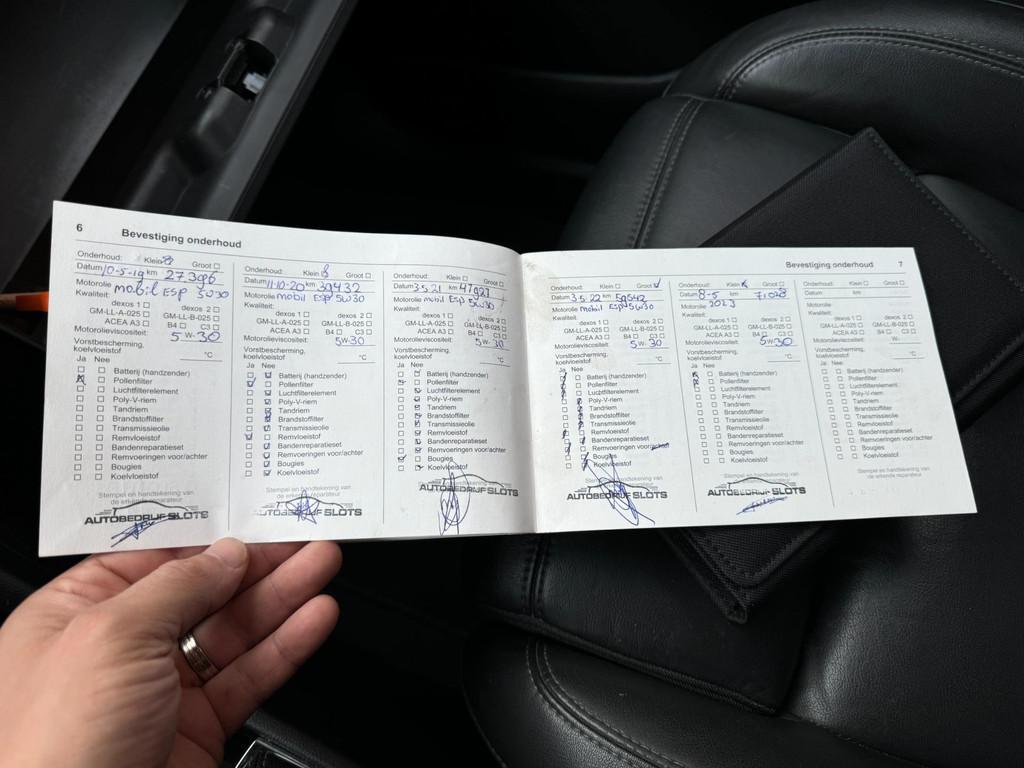 6 Bevestiging onderhoud
Onderhoud: Klein Groot
Datum 10-5-19 km 27396
Motorolie mobil ESP 5w30
Kwaliteit:
dexos 1 dexos 2
GM-LL-A-025 GM-LL-B-025
ACEA A3 B4 C3
Motorolieviscositeit: 5 W- 30
Vorstbescherming,
koelvloeistof °C
Ja Nee
Batterij (handzender)
Pollenfilter
Luchtfilterelement
Poly-V-riem
Tandriem
Brandstoffilter
Transmissieolie
Remvloeistof
Bandenreparatieset
Remvoeringen voor/achter
Bougies
Koelvloeistof
Stempel en handtekening van
de erkende reparateur
AUTOBEDRIJF SLOTS
Onderhoud: Klein Groot
Datum 11-10-20 km 39432
Motorolie mobil ESP 5w30
Kwaliteit:
dexos 1 dexos 2
GM-LL-A-025 GM-LL-B-025
ACEA A3 B4 C3
Motorolieviscositeit: 5 W- 30
Vorstbescherming,
koelvloeistof °C
Ja Nee
Batterij (handzender)
Pollenfilter
Luchtfilterelement
Poly-V-riem
Tandriem
Brandstoffilter
Transmissieolie
Remvloeistof
Bandenreparatieset
Remvoeringen voor/achter
Bougies
Koelvloeistof
Stempel en handtekening van
de erkende reparateur
AUTOBEDRIJF SLOTS
Onderhoud: Klein Groot
Datum 3.5.21 km
Motorolie mobil Esp 5w30
Kwaliteit:
dexos 1 dexos 2
GM-LL-A-025 GM-LL-B-025
ACEA A3 B4 C3
Motorolieviscositeit: 5 W- 30
Vorstbescherming,
koelvloeistof °C
Ja Nee
Batterij (handzender)
Pollenfilter
Luchtfilterelement
Poly-V-riem
Tandriem
Brandstoffilter
Transmissieolie
Remvloeistof
Bandenreparatieset
Remvoeringen voor/achter
Bougies
Koelvloeistof
Stempel en handtekening van
AUTOBEDRIJF SLOTS
Bevestiging onderhoud 7
Onderhoud: Klein Groot
Datum 3.5.22 km 59642
Motorolie mobil ESP 5w30
Kwaliteit:
dexos 1 dexos 2
GM-LL-A-025 GM-LL-B-025
ACEA A3 B4 C3
Motorolieviscositeit: 5 W- 30
Vorstbescherming,
koelvloeistof °C
Ja Nee
Batterij (handzender)
Pollenfilter
Luchtfilterelement
Poly-V-riem
Tandriem
Brandstoffilter
Transmissieolie
Remvloeistof
Bandenreparatieset
Remvoeringen voor/achter
Bougies
Koelvloeistof
Stempel en handtekening van
AUTOBEDRIJF SLOTS
Onderhoud: Klein Groot
Datum 8-5- km 71028
Motorolie 2023
Kwaliteit:
dexos 1 dexos 2
GM-LL-A-025 GM-LL-B-025
ACEA A3 B4 C3
Motorolieviscositeit: 5 W- 30
Vorstbescherming,
koelvloeistof °C
Ja Nee
Batterij (handzender)
Pollenfilter
Luchtfilterelement
Poly-V-riem
Tandriem
Brandstoffilter
Transmissieolie
Remvloeistof
Bandenreparatieset
Remvoeringen voor/achter
Bougies
Koelvloeistof
Stempel en handtekening van
AUTOBEDRIJF SLOTS
Onderhoud: Klein Groot
Datum km
Motorolie
Kwaliteit:
dexos 1 dexos 2
GM-LL-A-025 GM-LL-B-025
ACEA A3 B4 C3
Motorolieviscositeit: W-
Vorstbescherming,
koelvloeistof °C
Ja Nee
Batterij (handzender)
Pollenfilter
Luchtfilterelement
Poly-V-riem
Tandriem
Brandstoffilter
Transmissieolie
Remvloeistof
Bandenreparatieset
Remvoeringen voor/achter
Bougies
Koelvloeistof
Stempel en handtekening van
de erkende reparateur